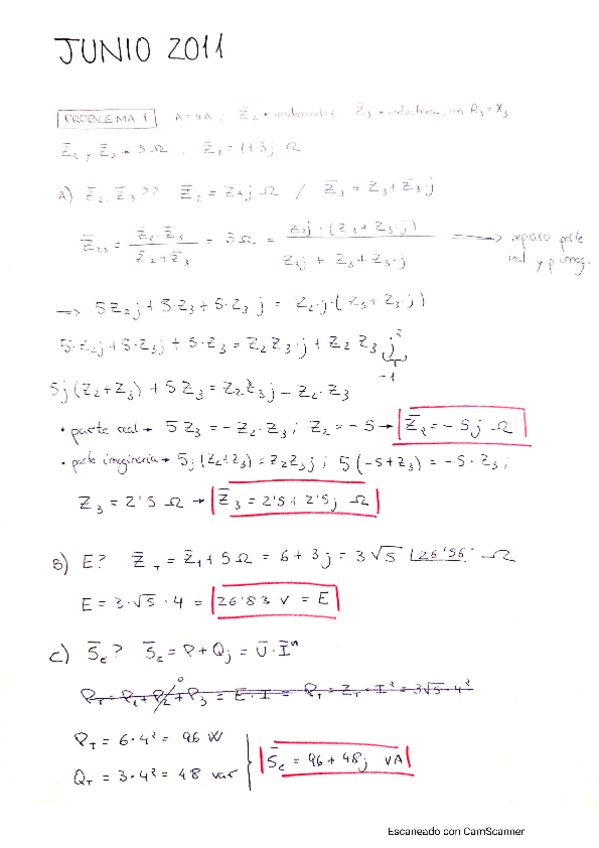 JUNIO 2011
PROBLEMA 1 A = 4A ; Z̄2 → Z̄3 → inductiva, con R3 = X3
Z̄2 y Z̄3 → 5 Ω , Z̄1 = 1+3j Ω
A) Z̄2, Z̄3 >> Z̄2 = Z2j Ω / Z̄3 = Z3 + Z3j
Z̄23 = Z̄2 · Z̄3 / Z̄2 + Z̄3 = 5 Ω = Z2j · (Z3 + Z3·j) / Z2j + Z3 + Z3·j → separo parte real y p. imag.
→ 5Z2j + 5·Z3 + 5·Z3j = Z2·j·(Z3 + Z3·j)
5·Z2j + 5·Z3j + 5·Z3 = Z2Z3·j + Z2Z3j²
-1
5j(Z2+Z3) + 5Z3 = Z2Z3j - Z2·Z3
• parte real → 5Z3 = -Z2·Z3 ; Z2 = -5 → Z̄2 = -5j Ω
• parte imaginaria → 5j(Z2+Z3) = Z2Z3j ; 5(-5+Z3) = -5·Z3 ;
Z3 = 2'5 Ω → Z̄3 = 2'5 + 2'5j Ω
B) E? Z̄T = Z̄1 + 5 Ω = 6 + 3j = 3√5 ∠26'56° Ω
E = 3·√5·4 = 26'83 V = E
C) S̄e? S̄e = P + Qj = Ū·Ī*
PT = P1 + P2 + P3 = E·I = PT = ZT·I² = 3√5·4²
0
PT = 6·4² = 96 W
QT = 3·4² = 48 var
S̄e = 96 + 48j VA
Escaneado con CamScanner